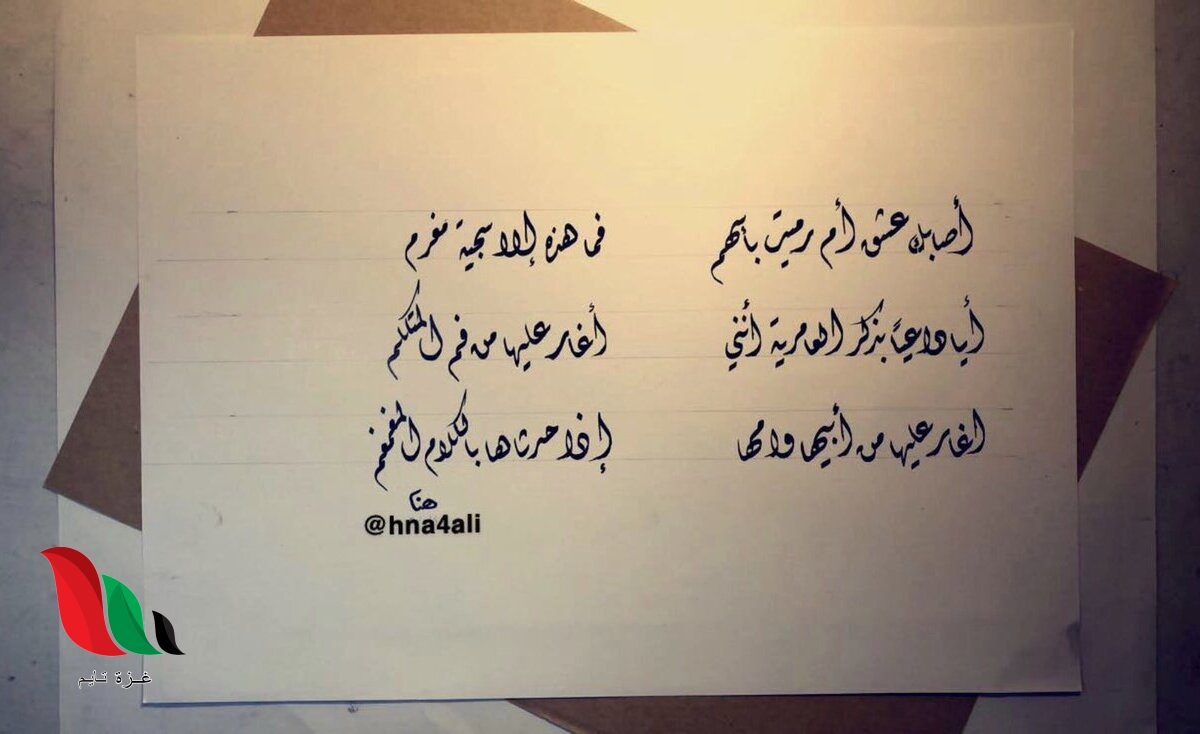 أصابك عشق أم رميت بأسهم فما هذه إلا سجية مغرم
أيا داعياً بذكر العامرية أنني أغار عليها من فم المتكلم
اغار عليها من أبيها وامها إذا حدثاها بالكلام المغمغم
هنا
@hna4ali
غزة تايم